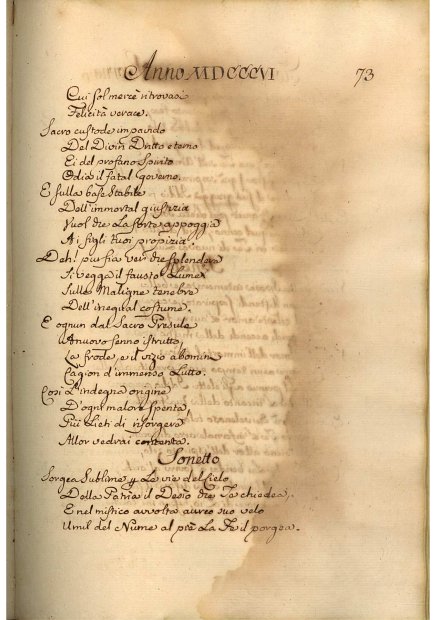 Anno MDCCCVI 73
Cui sol mercè ritrovasi
Felicità verace.
Sacro custode impavido
Del Divin Dritto eterno
Ei del profano Spirito
Odia il fatal governo.
E sulla base stabile
Dell'immortal giustizia
Vuol che la sorte appoggia
Ai figli tuoi propizia.
Deh! più fia ver che splendere
Si vegga il fausto lume
Sulle Maligne tenebre
Dell'inegual costume.
E ognun dal Sacro Presule
A nuovo senno istrutto
La frode, e il vizio abomini
Cagion d'immenso Lutto.
Così l'indegna origine
D'ogni malore spenta,
Più Lieti dì risorgere
Allor vedrai contenta.
Sonetto
Sorgea Sublime per le vie del Cielo
Della Patria il Desio che Ta chiedea,
E nel mistico avvolta aureo suo velo
Umil del Nume al piè La Fè il porgea.